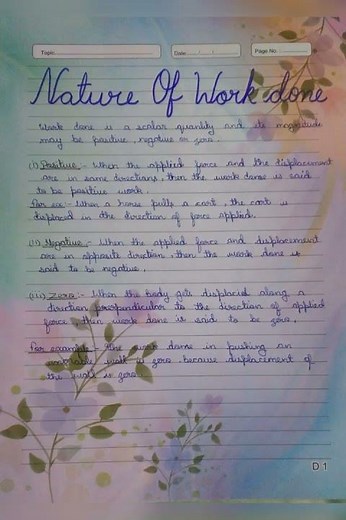 Topic
Date: / /
Page No.
Nature Of Work done
Work done is a scalar quantity and its magnitude
may be positive, negative or zero.
(i) Positive :- When the applied force and the displacement
are in same directions, then the work done is said
to be positive work.
For ex:- When a horse pulls a cart, the cart is
displaced in the direction of force applied.
(ii) Negative :- When the applied force and displacement
are in opposite direction, then the work done is
said to be negative.
(iii) Zero :- When the body gets displaced along a
direction perpendicular to the direction of applied
force, then work done is said to be zero.
For example:- The work done in pushing an
immovable wall is zero because displacement of
the wall is zero.
D 1